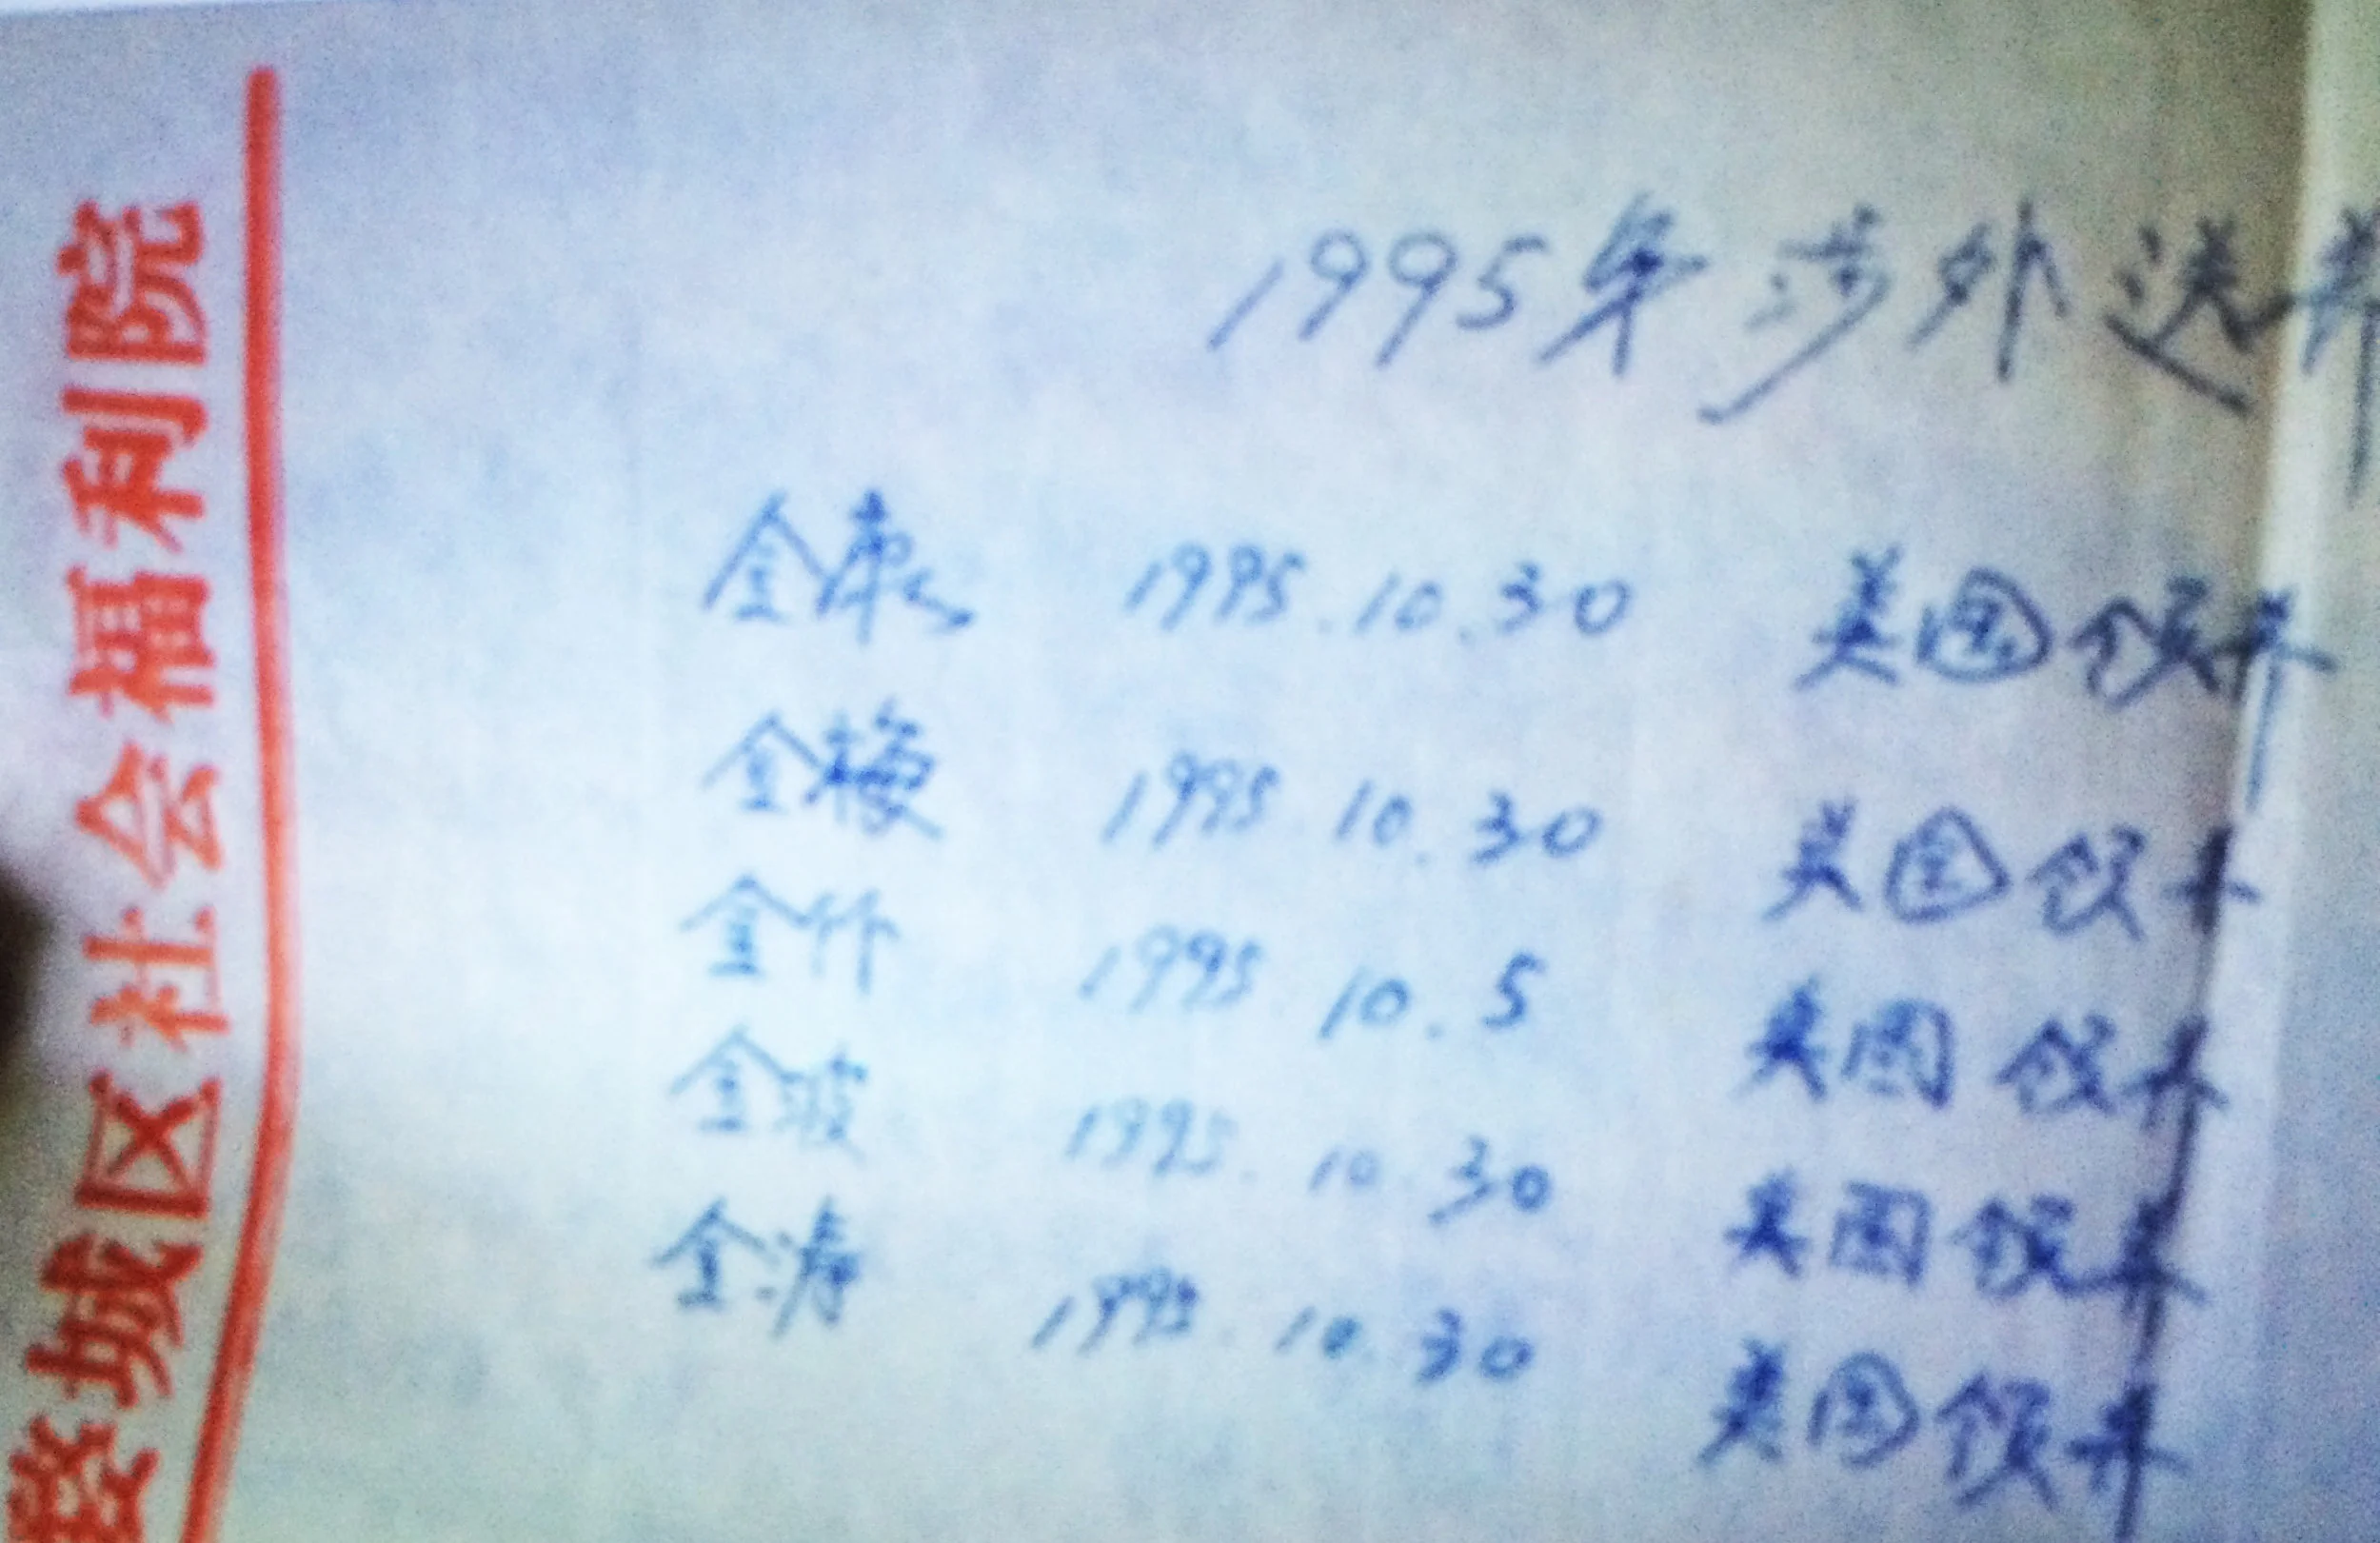 1995年涉外送养
金康 1995.10.30 美国领养
金梅 1995.10.30 美国领养
金竹 1995 10.5 美国领养
金波 1995.10.30 美国领养
金涛 1995.10.30 美国领养
婺城区社会福利院